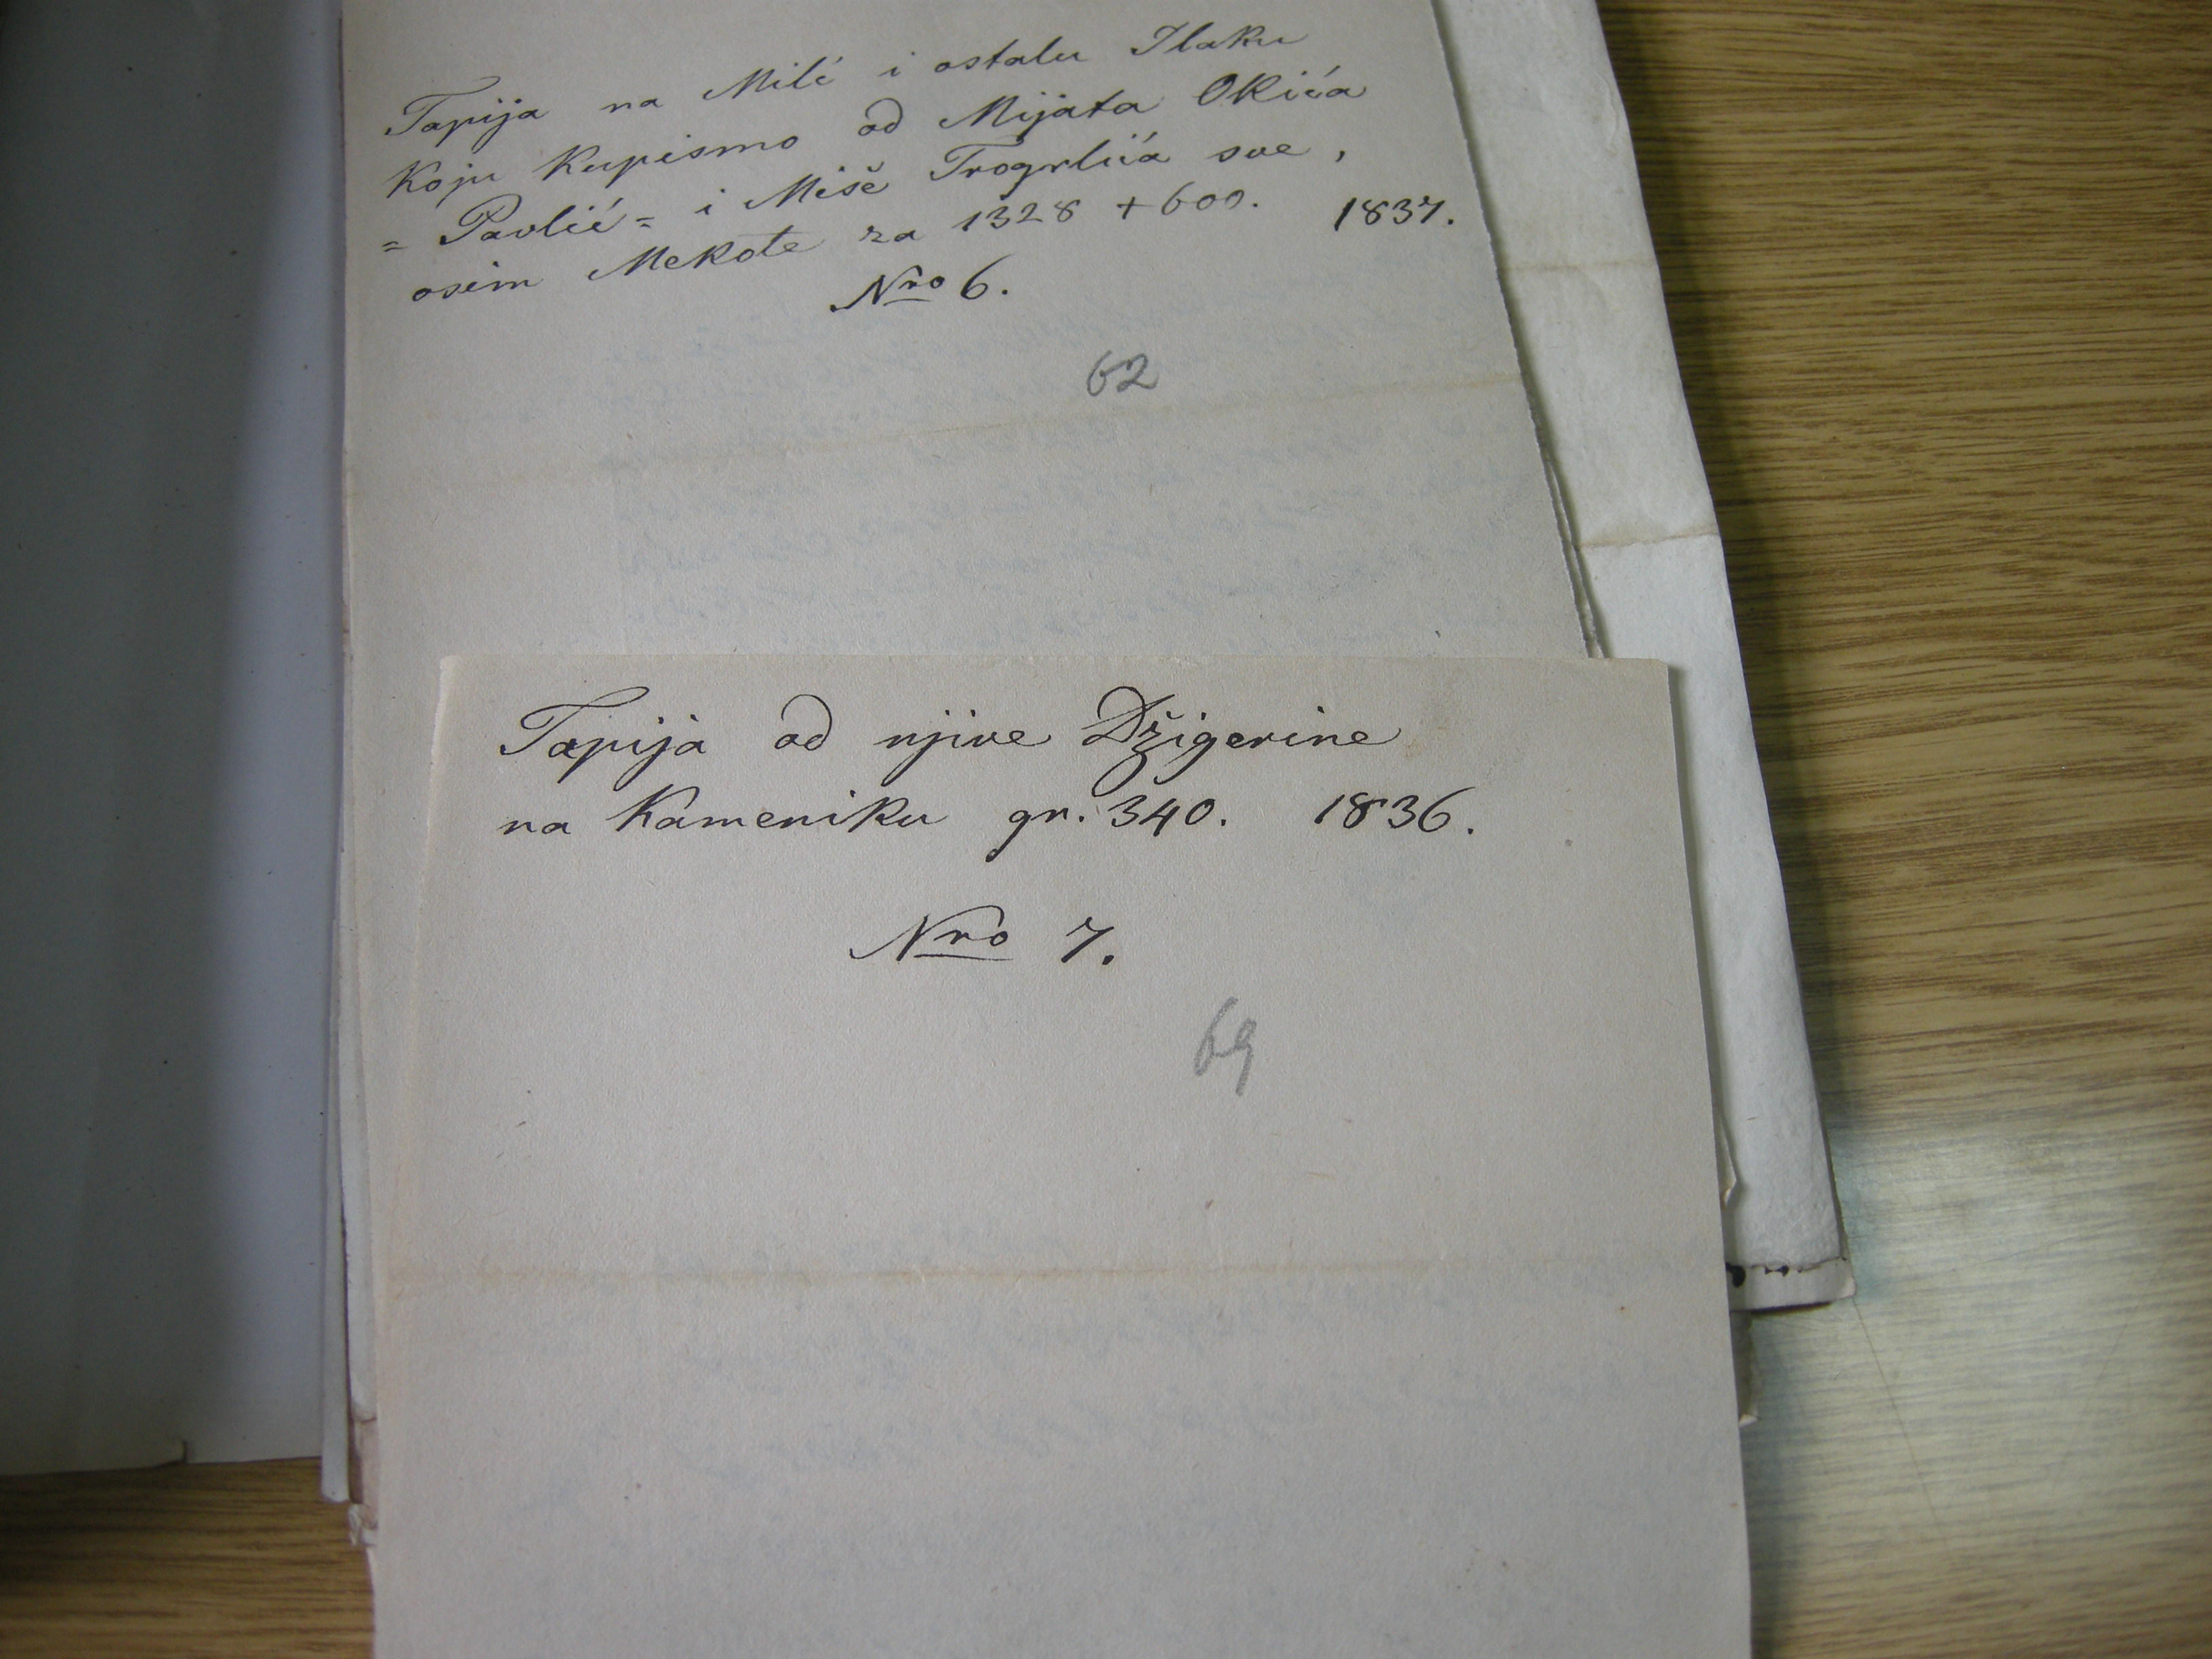 Tapija na Milć i ostalu Ilaku
Koju Kupismo od Mijata Okića
= Pavlić = i Miše Trogrlića sve,
osim Mekote za 1328 + 600. 1837.
Nro 6.
62
Tapija od njive Džigerine
na Kameniku gr. 340. 1836.
Nro 7.
69